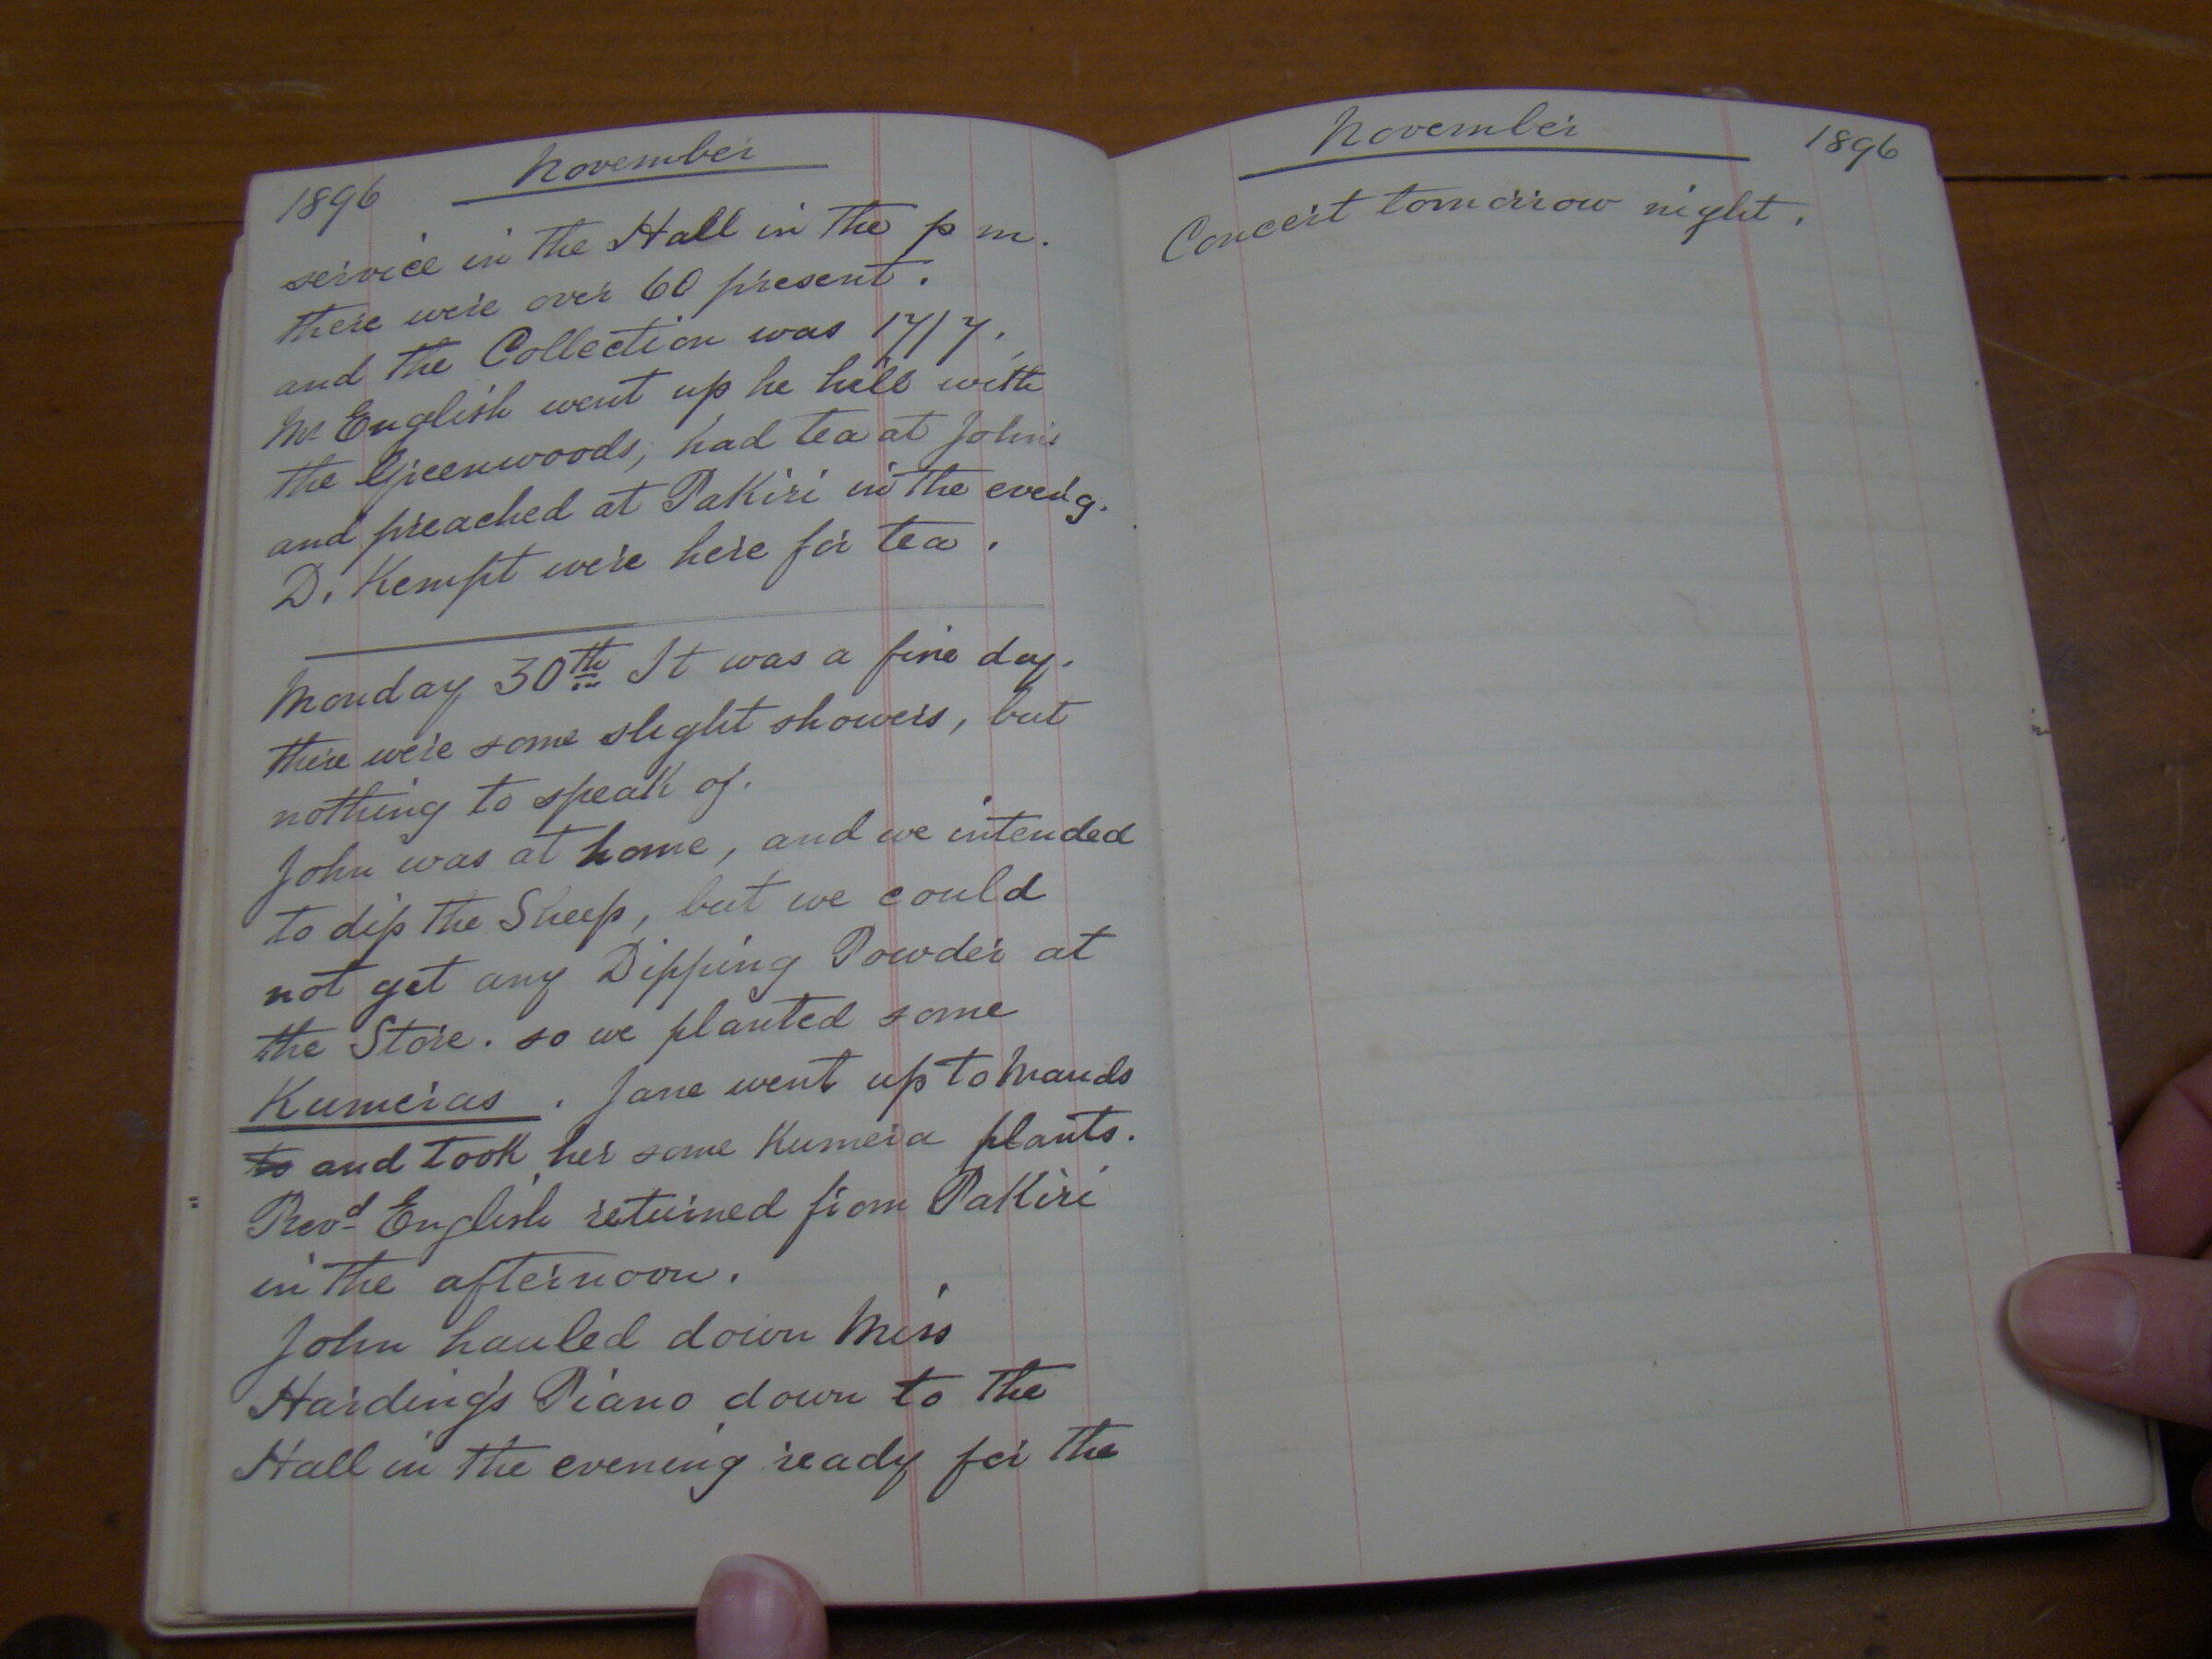 1896 November
service in the Hall in the p m.
there were over 60 present.
and the Collection was 17/7.
Mr English went up he hill with
the Greenwoods, had tea at John's
and preached at Pakiri in the evening.
D. Kempt were here for tea.
Monday 30th It was a fine day.
there were some slight showers, but
nothing to speak of.
John was at home, and we intended
to dip the Sheep, but we could
not get any Dipping Powder at
the Store. so we planted some
Kumeras. Jane went up to Mauds
to and took her some Kumera plants.
Revd English returned from Pakiri
in the afternoon.
John hauled down Miss
Harding's Piano down to the
Hall in the evening ready for the
November 1896
Concert tomorrow night.